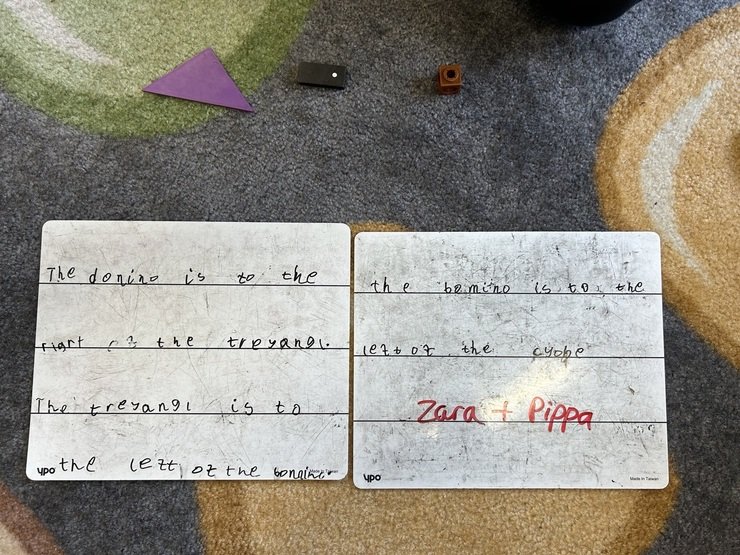 The donino is to the
right of the treyangl.
The treyangl is to
the left of the
ypo
Made in Taiwan
the bomino is to the
left of the cyobe
Zara + Pippa
ypo
Made in Taiwan